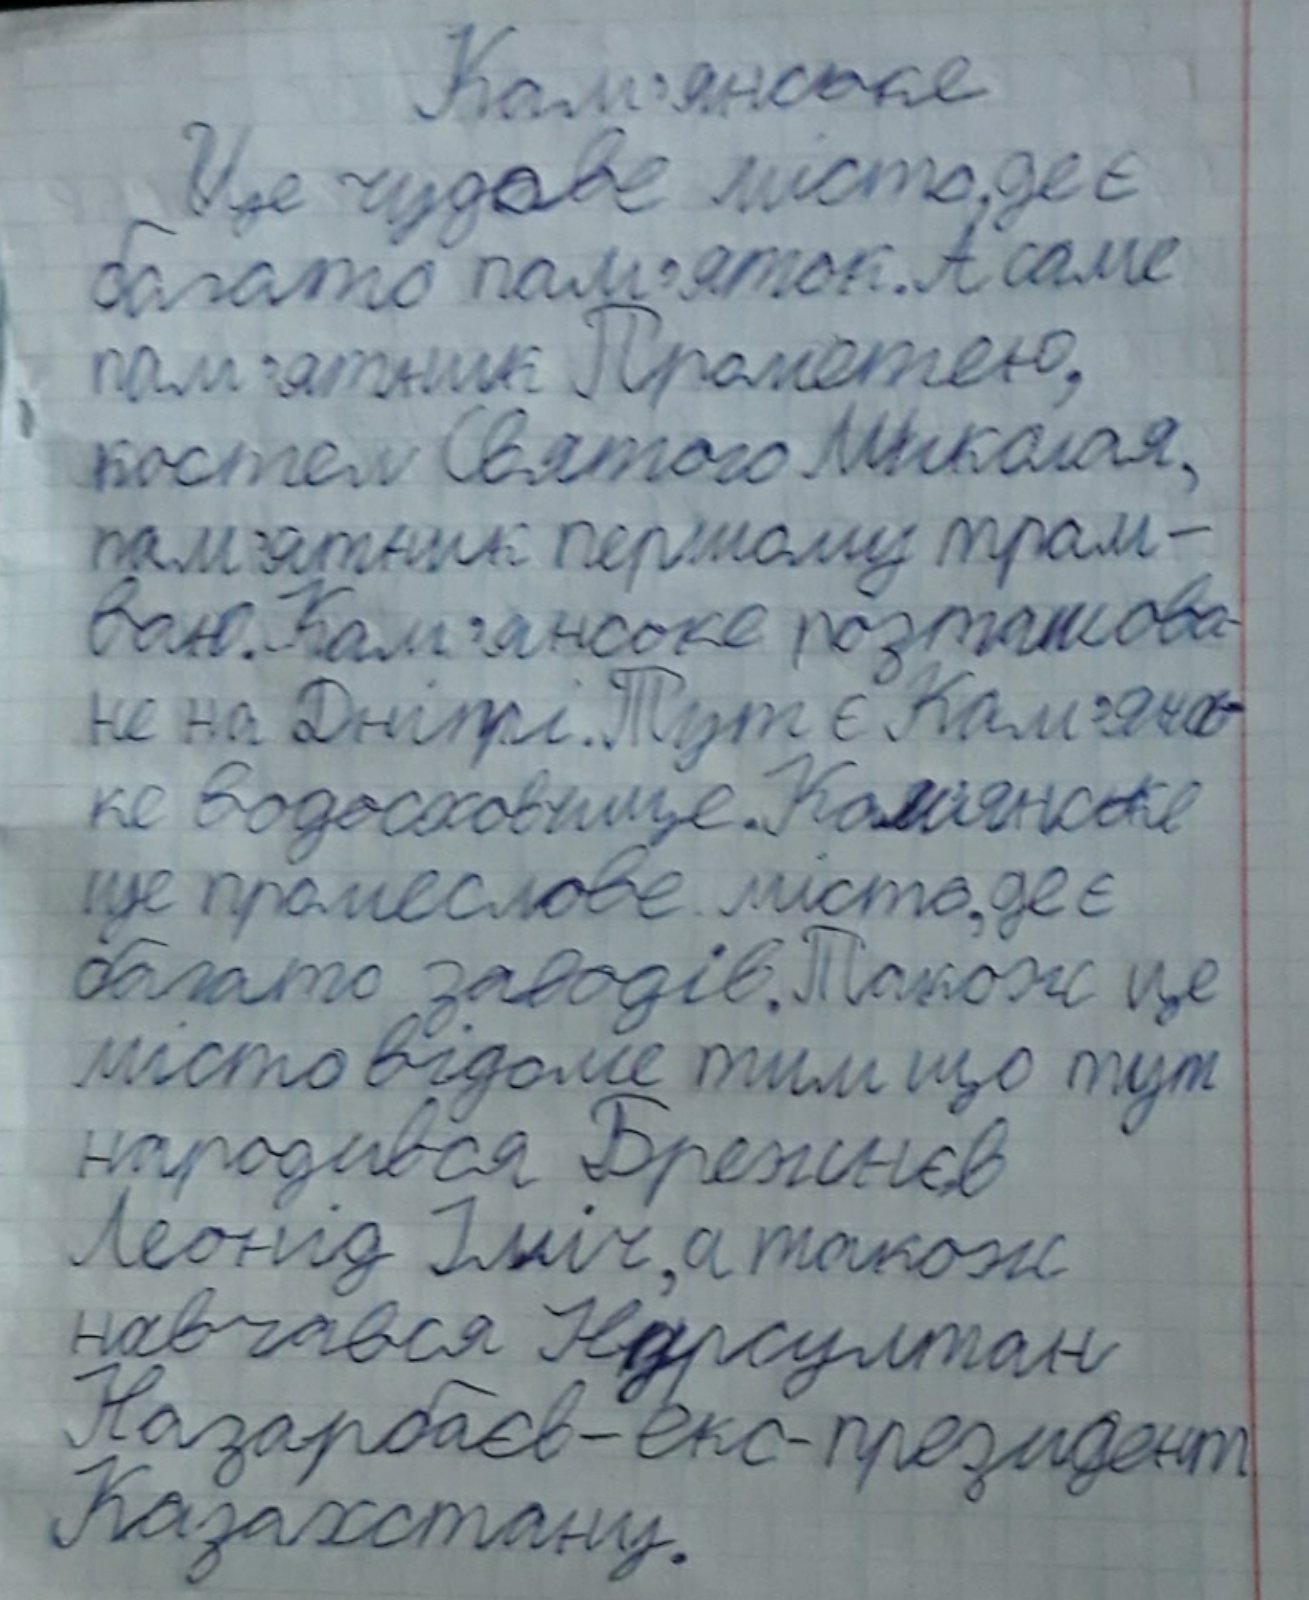 Кам'янське
Це чудове місто, де є
багато пам'яток. А саме
пам'ятник Прометею,
костел Святого Миколая,
пам'ятник першому трам-
ваю. Кам'янське розташова-
не на Дніпрі. Тут є Кам'янсь-
ке водосховище. Кам'янське
це промеслове місто, де є
багато заводів. Також це
місто відоме тим що тут
народився Брежнєв
Леонід Ілліч, а також
навчався Нурсултан
Назарбаєв - екс-президент
Казахстану.